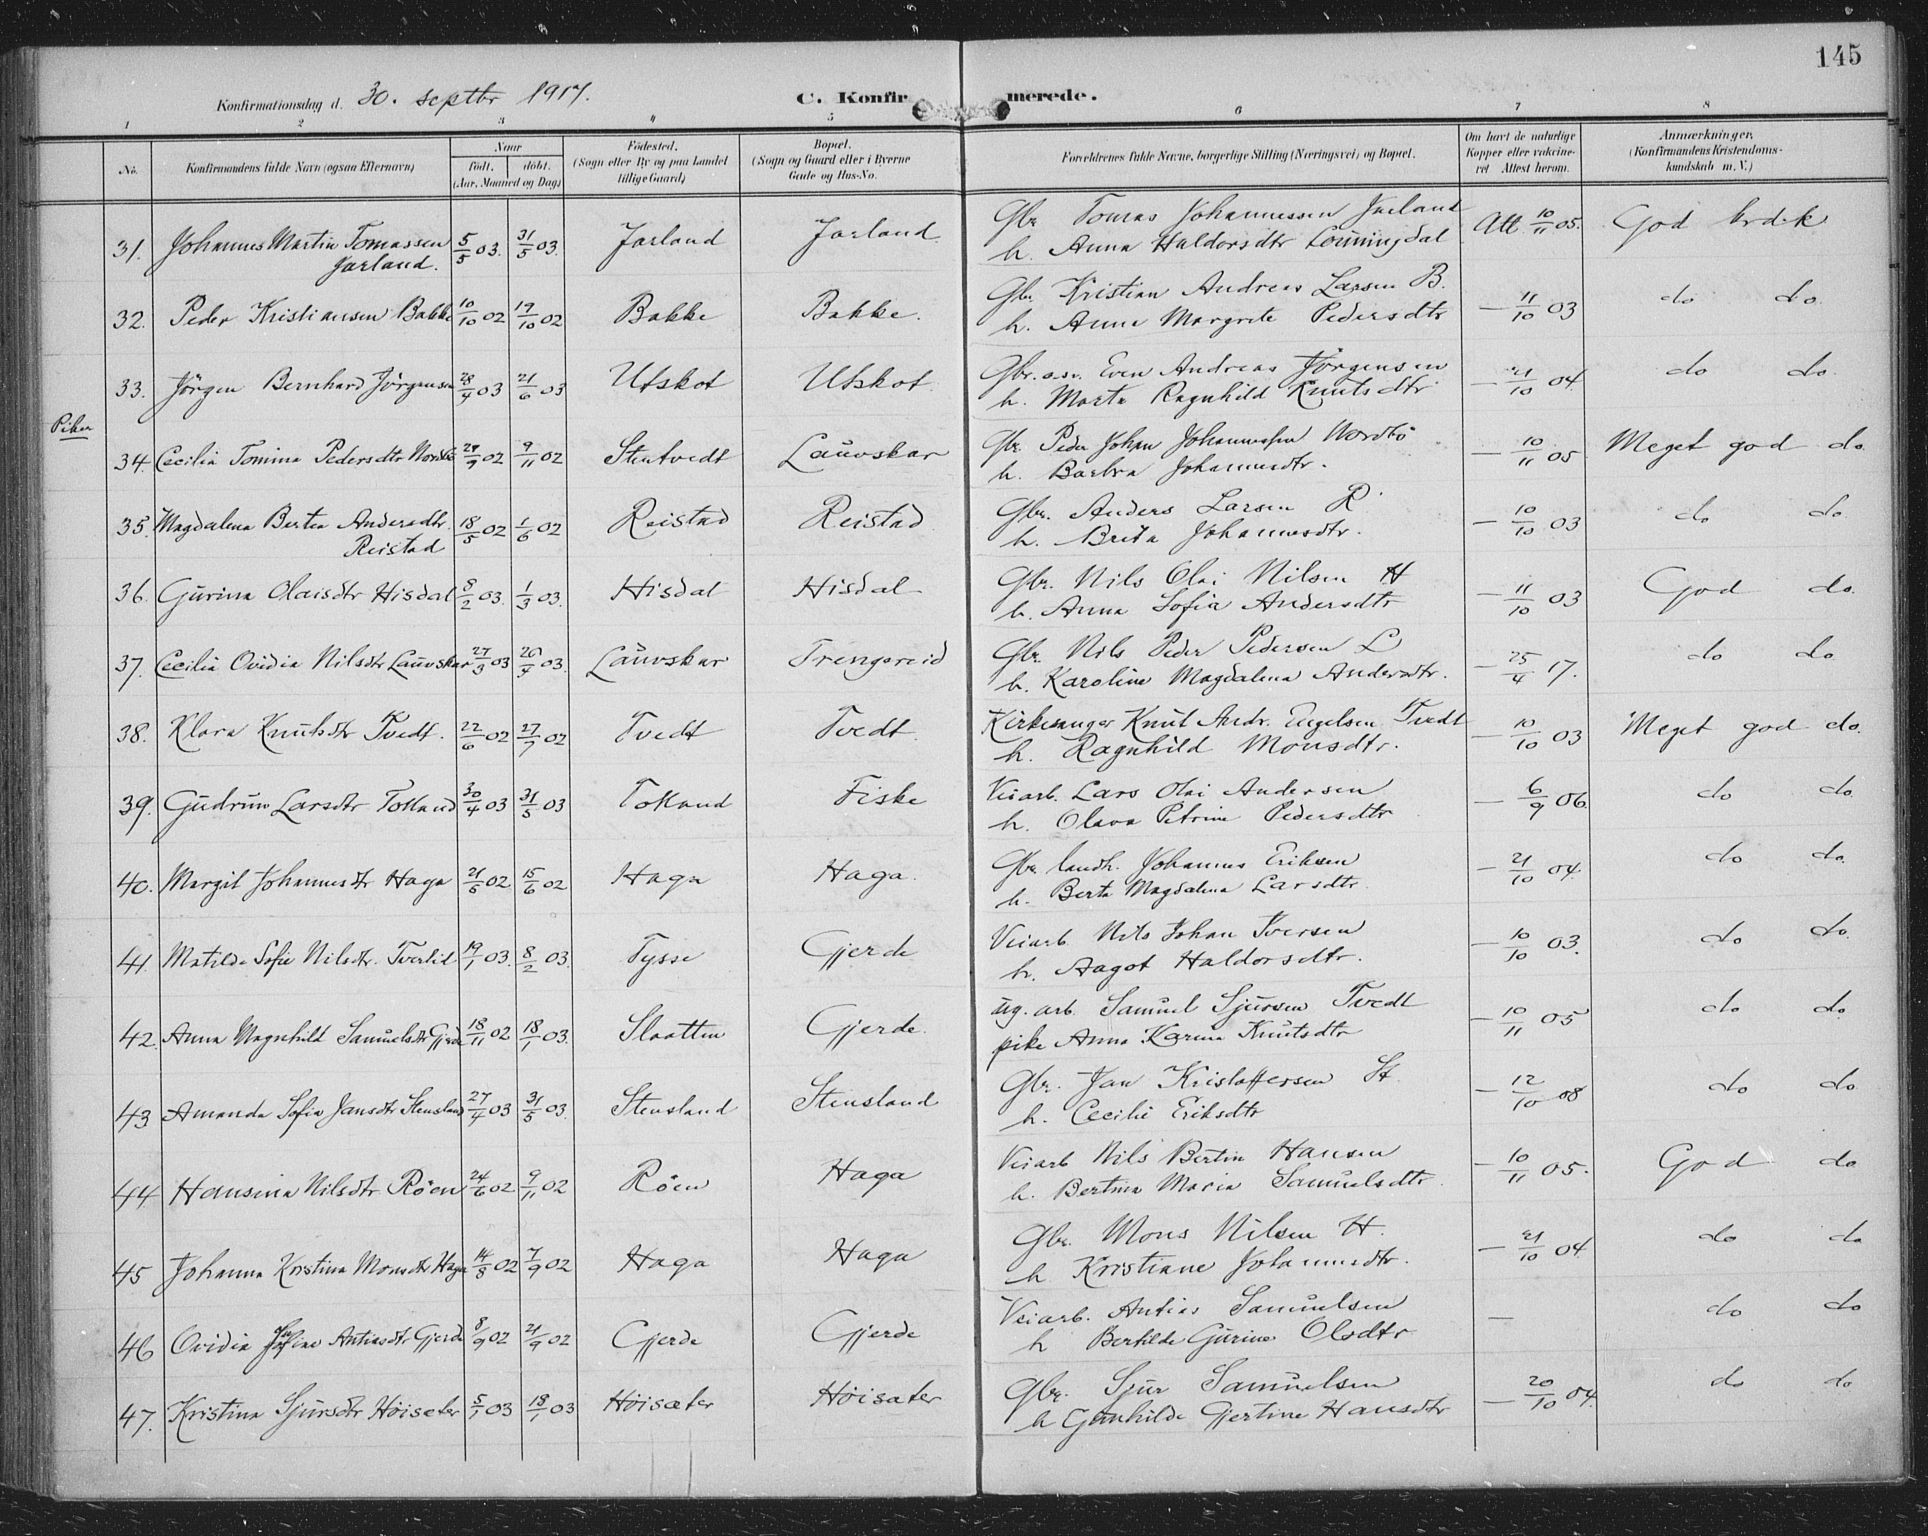 145
Konfirmationsdag d. 30. septbr 1917.
C. Konfirmerede.
1 2 3 4 5 6 7 8
No.
Konfirmandens fulde Navn (ogsaa Efternavn)
Naar
født. døbt.
(Aar, Maaned og Dag)
Fødested.
(Sogn eller By og paa Landet
tillige Gaard)
Bopæl.
(Sogn og Gaard eller i Byerne
Gade og Hus-No.
Forældrenes fulde Navne, borgerlige Stilling (Næringsvei) og Bopæl.
Om havt de naturlige
Kopper eller vakcine-
ret Attest herom.
Anmærkninger.
(Konfirmandens Kristendoms-
kundskab m. V.)
31. Johannes Martin Tomassen Jarland. 5/5 03. 31/5 03. Jarland Jarland Gbr Tomas Johannessen Jarland Att 10/11 05. God
h. Anna Haldorsdtr
32. Peder Kristiansen Bakke 10/10 02 19/10 02 Bakke Bakke. Gbr. Kristian Andreas Larsen B. — 11/10 03 do do.
h. Anna Margrete Pedersdtr
33. Jörgen Bernhard Jörgensen 28/4 03 21/6 03 Utskot Utskot Gbr. Even Andreas Jörgensen — 21/10 04. do do.
h. Marta Ragnhild Knutsdtr
Piker
34. Cecilia Tomina Pedersdtr Nordbö 29/9 02 9/11 02 Stentvedt Lauvskar Gbr. Peder Johan Johannessen Nordbö — 10/11 05 Meget god do.
h. Barbra Johannesdtr.
35. Magdalena Bertea Andersdtr. Reistad 18/5 02 1/6 02 Reistad Reistad Gbr. Anders Larsen R. — 10/10 03 do do
h. Brita Johannesdtr.
36. Gurina Olaisdtr Hisdal 8/2 03. 1/3 03. Hisdal Hisdal Gbr. Nils Olai Nilsen H — 11/10 03 God do.
h. Anna Sofia Andersdtr
37. Cecilia Ovidia Nilsdtr Lauvskar 27/3 03 26/4 03. Lauvskar Trengereid Gbr. Nils Peder Pedersen L — 25/4 17. do do.
h. Karoline Magdalena Andersdtr.
38. Klara Knutsdtr Tvedt. 22/6 02 27/7 02 Tvedt Tvedt. Kirkesanger Knut Andr. Engelsen Tvedt — 10/10 03 Meget god do.
h. Ragnhild Monsdtr.
39. Gudrun Larsdtr Tokland 30/4 03 31/5 03 Tokland Fiske Veiarb. Lars Olai Andersen — 6/9 06. do do.
h. Olava Petrine Pedersdtr
40. Margit Johannesdtr Haga 21/5 02 15/6 02 Haga Haga. Gbr. landh. Johannes Eriksen — 21/10 04. do do.
h. Berta Magdalena Larsdtr.
41. Matilde Sofie Nilsdtr. Tverlid 19/1 03. 8/2 03. Tysse Gjerde Veiarb. Nils Johan Iversen — 10/10 03. do do.
h. Aagot Haldorsdtr.
42. Anna Magnhild Samuelsdtr Gjerde 18/11 02 18/1 03. Slaatten Gjerde. ug. arb. Samuel Sjursen Tvedt — 10/11 05 do do.
pike Anna Karina Knutsdtr
43 Amanda Sofia Jansdtr Stensland 27/4 03 31/5 03. Stensland Stensland Gbr. Jan Kristoffersen St. — 12/10 08 do do.
h. Cecilie Eriksdtr
44 Hansina Nilsdtr Röen 24/6 02 9/11 02 Röen Haga Veiarb Nils Bertin Hansen — 10/11 05. God do
h. Bertina Maria Samuelsdtr.
45 Johanna Kristina Monsdtr Haga 14/8 02 7/9 02 Haga Haga Gbr. Mons Nilsen H. — 21/10 04 do do
h Kristiane Johannesdtr.
46 Ovidia Antiasdtr Gjerde 8/9 02 21/9 02 Gjerde Gjerde Veiarb. Antias Samuelsen — do do
h Bertilde Gurine Olsdtr
47. Kristina Sjursdtr Höisæter 5/1 03 18/1 03 Höisæter Höisæter Gbr. Sjur Samuelsen — 20/10 04. do do
h Gunhilde Gjertine Hansdtr